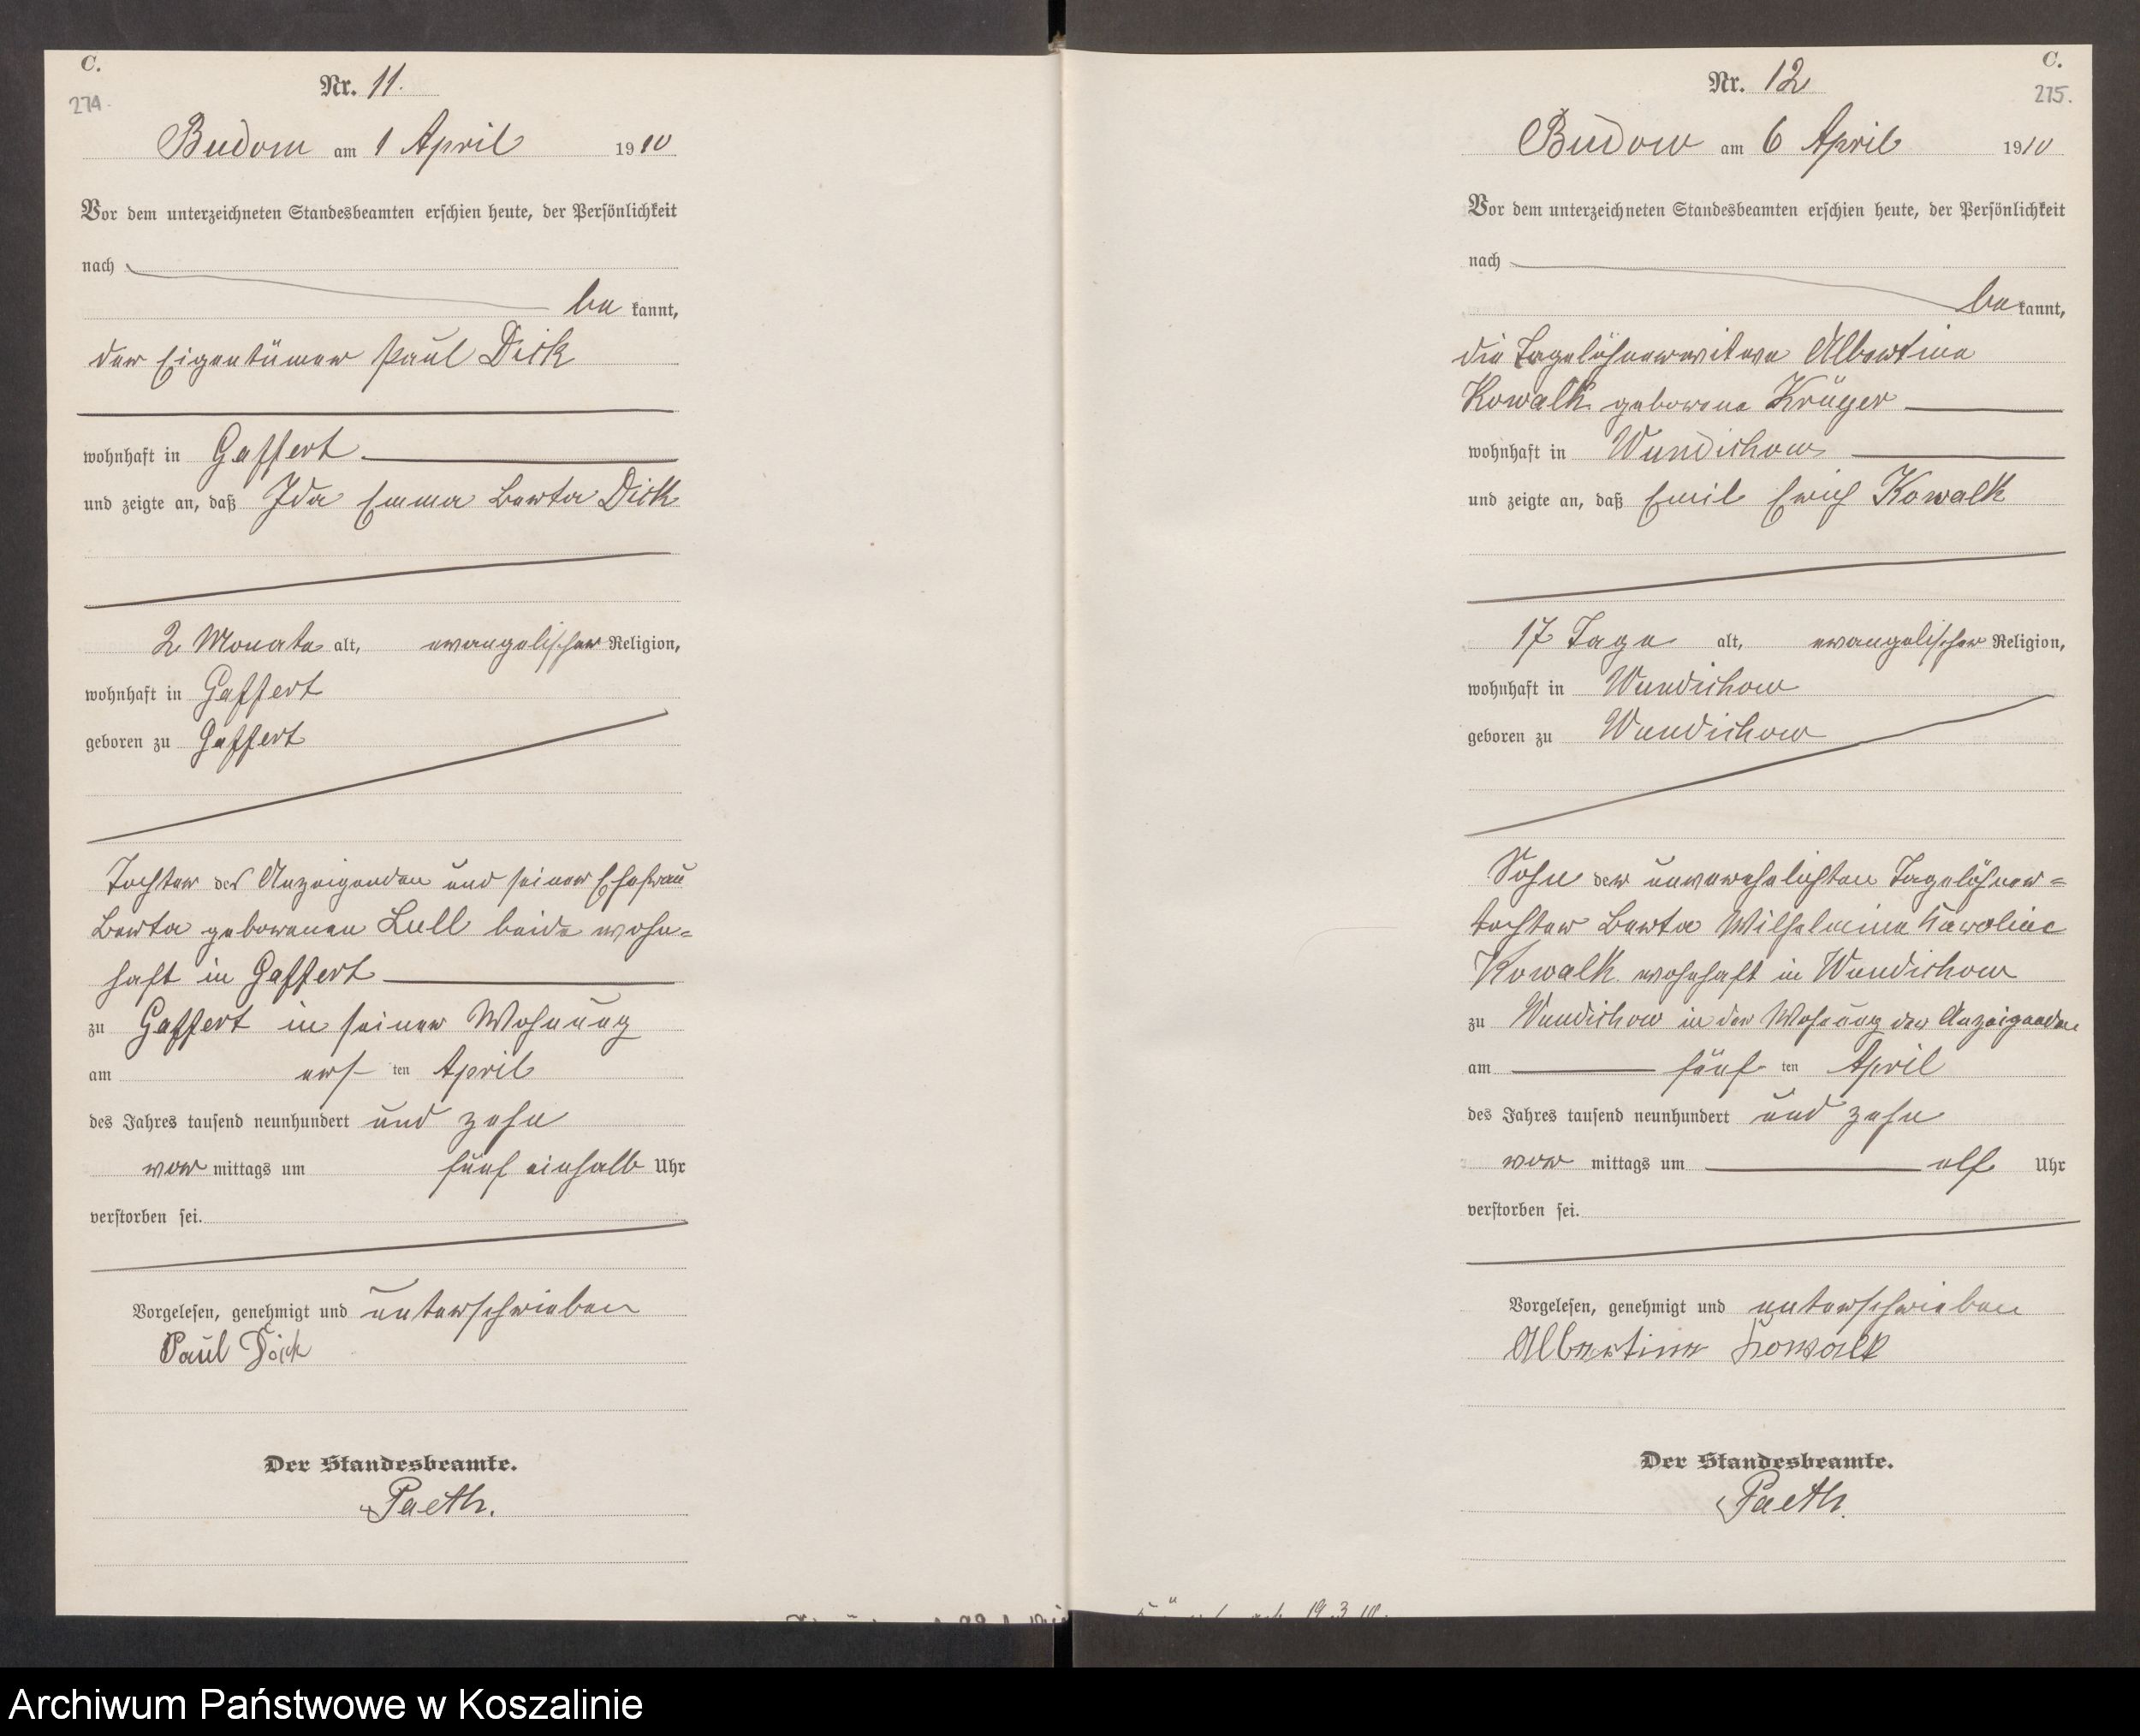 C.
274.
Nr. 11.
Budow am 1 April 1910
Vor dem unterzeichneten Standesbeamten erschien heute, der Persönlichkeit
nach
be kannt,
der Eigentümer Paul Dick
wohnhaft in Gaffert
und zeigte an, daß Ida Emma Berta Dick
2 Monate alt, evangelischer Religion,
wohnhaft in Gaffert
geboren zu Gaffert
Tochter des Anzeigenden und seiner Ehefrau
Berta geborenen Lull beide wohn=
haft in Gaffert
zu Gaffert in seiner Wohnung
am ers ten April
des Jahres tausend neunhundert und zehn
vor mittags um fünf einhalb Uhr
verstorben sei.
Vorgelesen, genehmigt und unterschrieben
Paul Dick
Der Standesbeamte.
Paeth.
C.
275.
Nr. 12
Budow am 6 April 1910
Vor dem unterzeichneten Standesbeamten erschien heute, der Persönlichkeit
nach
be kannt,
die Tagelöhnerwitwe Albertine
Kowalk geborene Krüger
wohnhaft in Wundichow
und zeigte an, daß Emil Erich Kowalk
17 Tage alt, evangelischer Religion,
wohnhaft in Wundichow
geboren zu Wundichow
Sohn der unverehelichten Tagelöhner=
tochter Berta Wilhelmine Karoline
Kowalk wohnhaft in Wundichow
zu Wundichow in der Wohnung der Anzeigenden
am fünf ten April
des Jahres tausend neunhundert und zehn
vor mittags um elf Uhr
verstorben sei.
Vorgelesen, genehmigt und unterschrieben
Albertine Kowalk
Der Standesbeamte.
Paeth.
19.3.10.
Archiwum Państwowe w Koszalinie